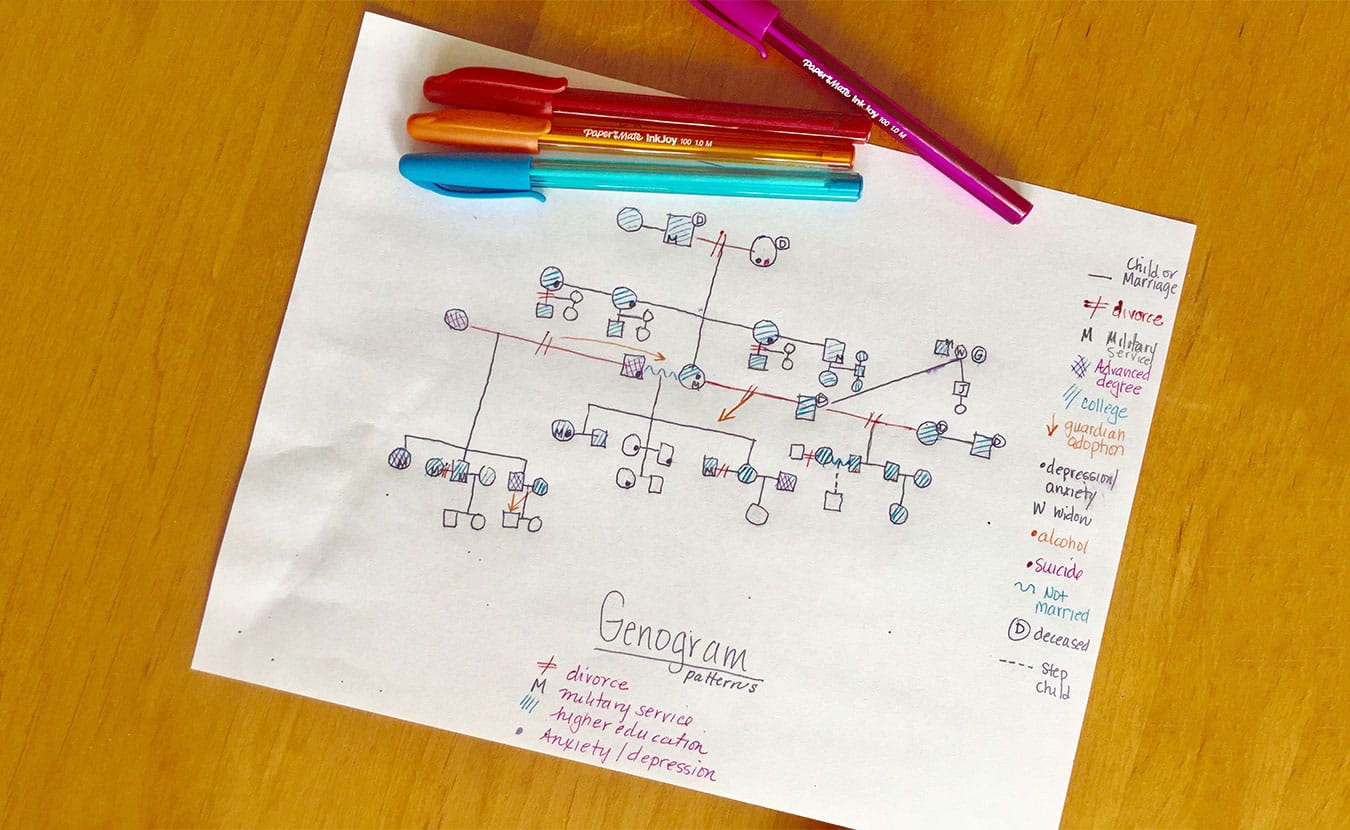 PAPER MATE InkJoy 100 1.0 M
PAPER MATE InkJoy 100 1.0 M
D
M
D
M
M
W
G
J
M
D
D
D
M
M
M
M
Child or
Marriage
divorce
M Military
Service
Advanced
degree
college
guardian
adoption
depression/
anxiety
W widow
alcohol
suicide
Not
married
D deceased
Step
child
Genogram
patterns
divorce
M military service
higher education
Anxiety/depression